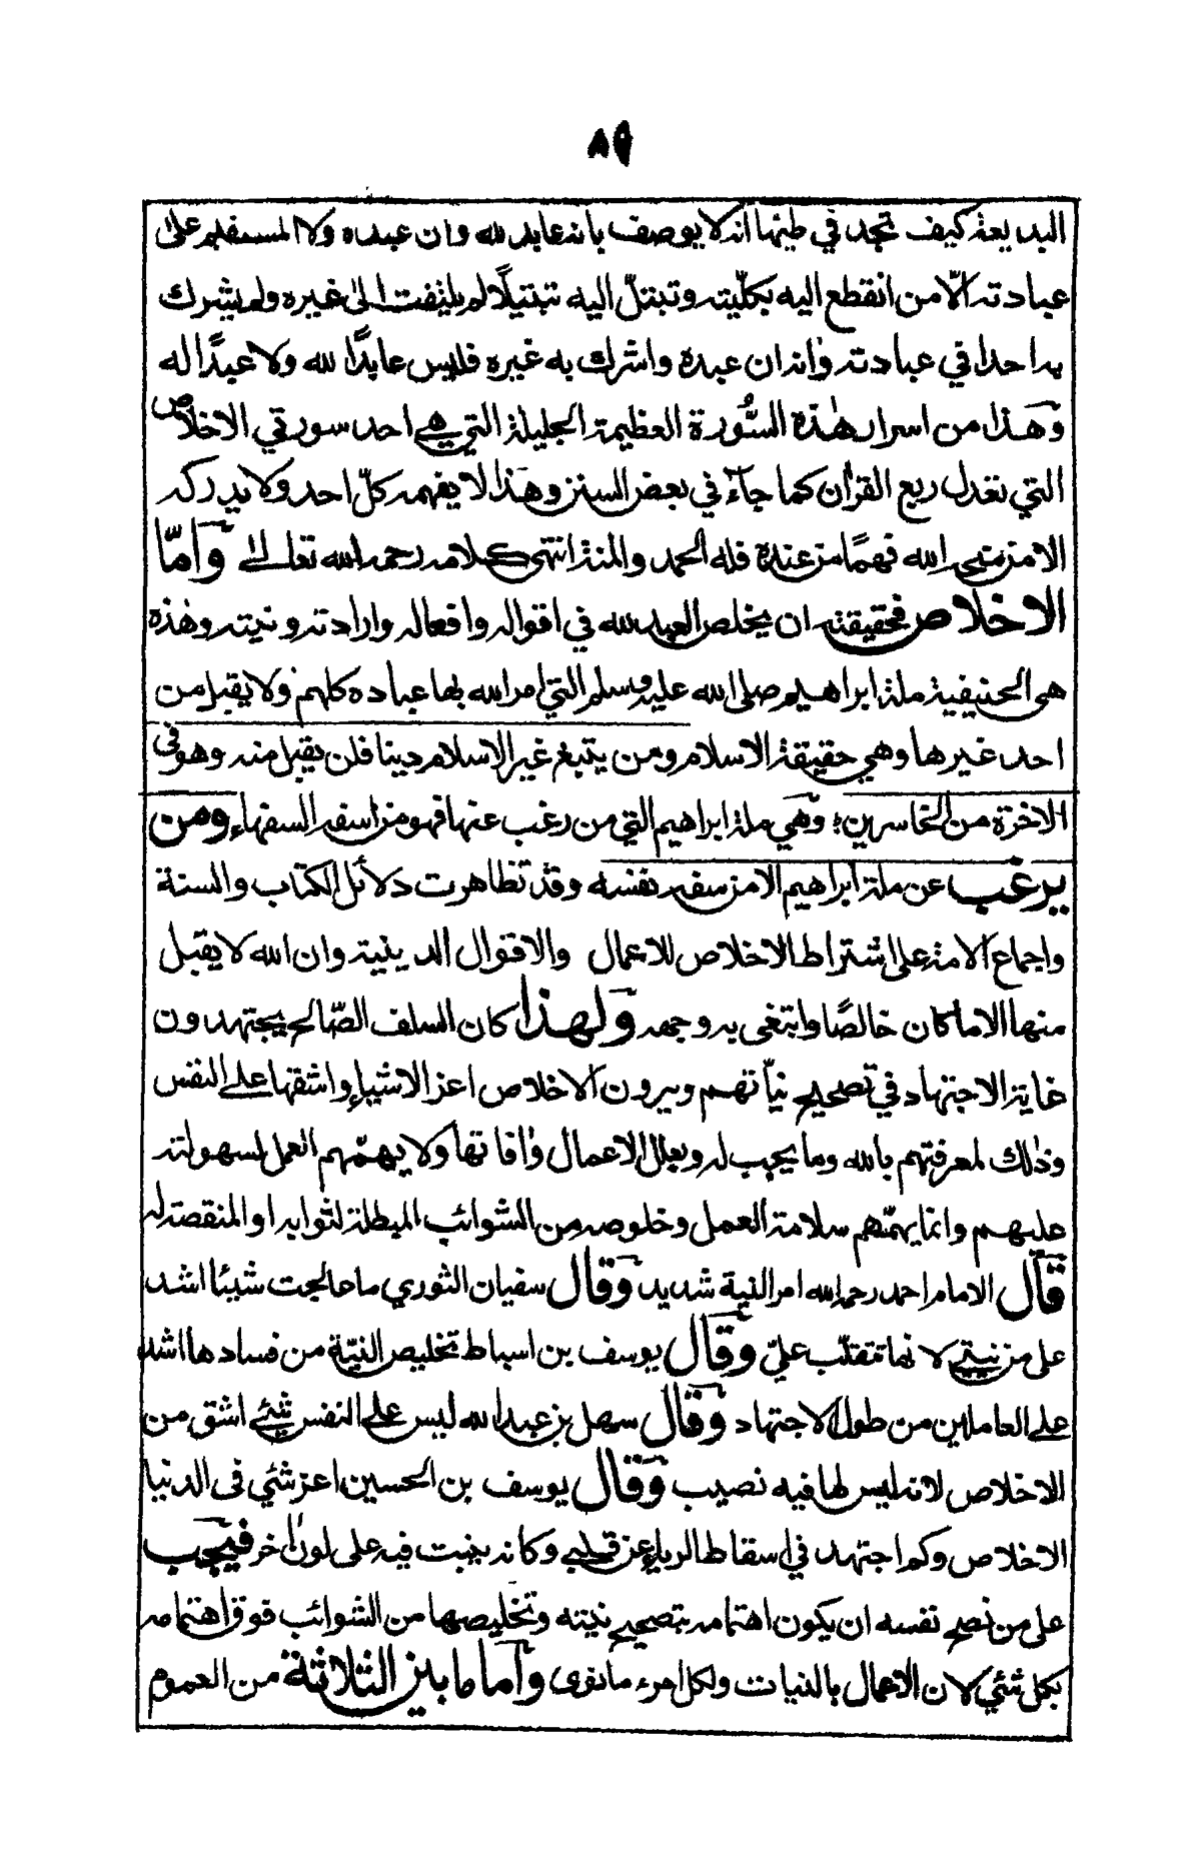 ٨٩
البديعة كيف تجد في طيها انه لا يوصف بانه عابد لله وان عبده ولا المستقيم على
عبادته الّا من انقطع اليه بكلّيته وتبتّل اليه تبتيلًا لم يلتفت الى غيره ولم يشرك
به احدا في عبادته وانه ان عبده واشرك به غيره فليس عابدًا لله ولا عبدًا له
وهذا من اسرار هذه السُّورة العظيمة الجليلة التي هي احد سورتي الاخلاص
التي تعدل ربع القرآن كما جآء في بعض السنن وهذا لا يفهمه كلّ احد ولا يدركه
الا من منحه الله فهمًا من عنده فله الحمد والمنة انتهى كلامه رحمه الله تعالى وامّا
الاخلاص فحقيقته ان يخلص العبد لله في اقواله وافعاله وارادته ونيته وهذه
هي الحنيفية ملة ابراهيم صلى الله عليه وسلم التي امر الله بها عباده كلهم ولا يقبل من
احد غيرها وهي حقيقة الاسلام ومن يتبغ غير الاسلام دينا فلن يقبل منه وهو في
الاخرة من الخاسرين؛ وهي ملة ابراهيم التي من رغب عنها فهو من اسفه السفهاء ومن
يرغب عن ملة ابراهيم الا من سفه نفسه وقد تظاهرت دلائل الكتاب والسنة
واجماع الامة على اشتراط الاخلاص للاعمال والاقوال الدينية وان الله لا يقبل
منها الا ما كان خالصًا وابتغى به وجهه ولهذا كان السلف الصّالح يجتهدون
غاية الاجتهاد في تصحيح نيّاتهم ويرون الاخلاص اعز الاشياء واشقها على النفس
وذلك لمعرفتهم بالله وما يجب له وبعلل الاعمال وآفاتها ولا يهمّهم العمل لسهولته
عليهم وانما يهمّهم سلامة العمل وخلوصه من الشوائب المبطلة لثوابه او المنقصة له
قال الامام احمد رحمه الله امر النية شديد وقال سفيان الثوري ما عالجت شيئا اشد
على من نيتي لانها تتقلّب عليّ وقال يوسف بن اسباط تخليص النيّة من فسادها اشد
على العاملين من طول الاجتهاد وقال سهل بن عبد الله ليس على النفس شيئ اشق من
الاخلاص لانه ليس لها فيه نصيب وقال يوسف بن الحسين اعز شئي في الدنيا
الاخلاص وكم اجتهد في اسقاط الرياء عن قلبي وكانه ينبت فيه على لون آخر فيجب
على من نصح نفسه ان يكون اهتمامه بتصحيح نيته وتخليصها من الشوائب فوق اهتمامه
بكل شئي لان الاعمال بالنيات ولكل امرء ما نوى وأما ما بين الثلاثة من العموم